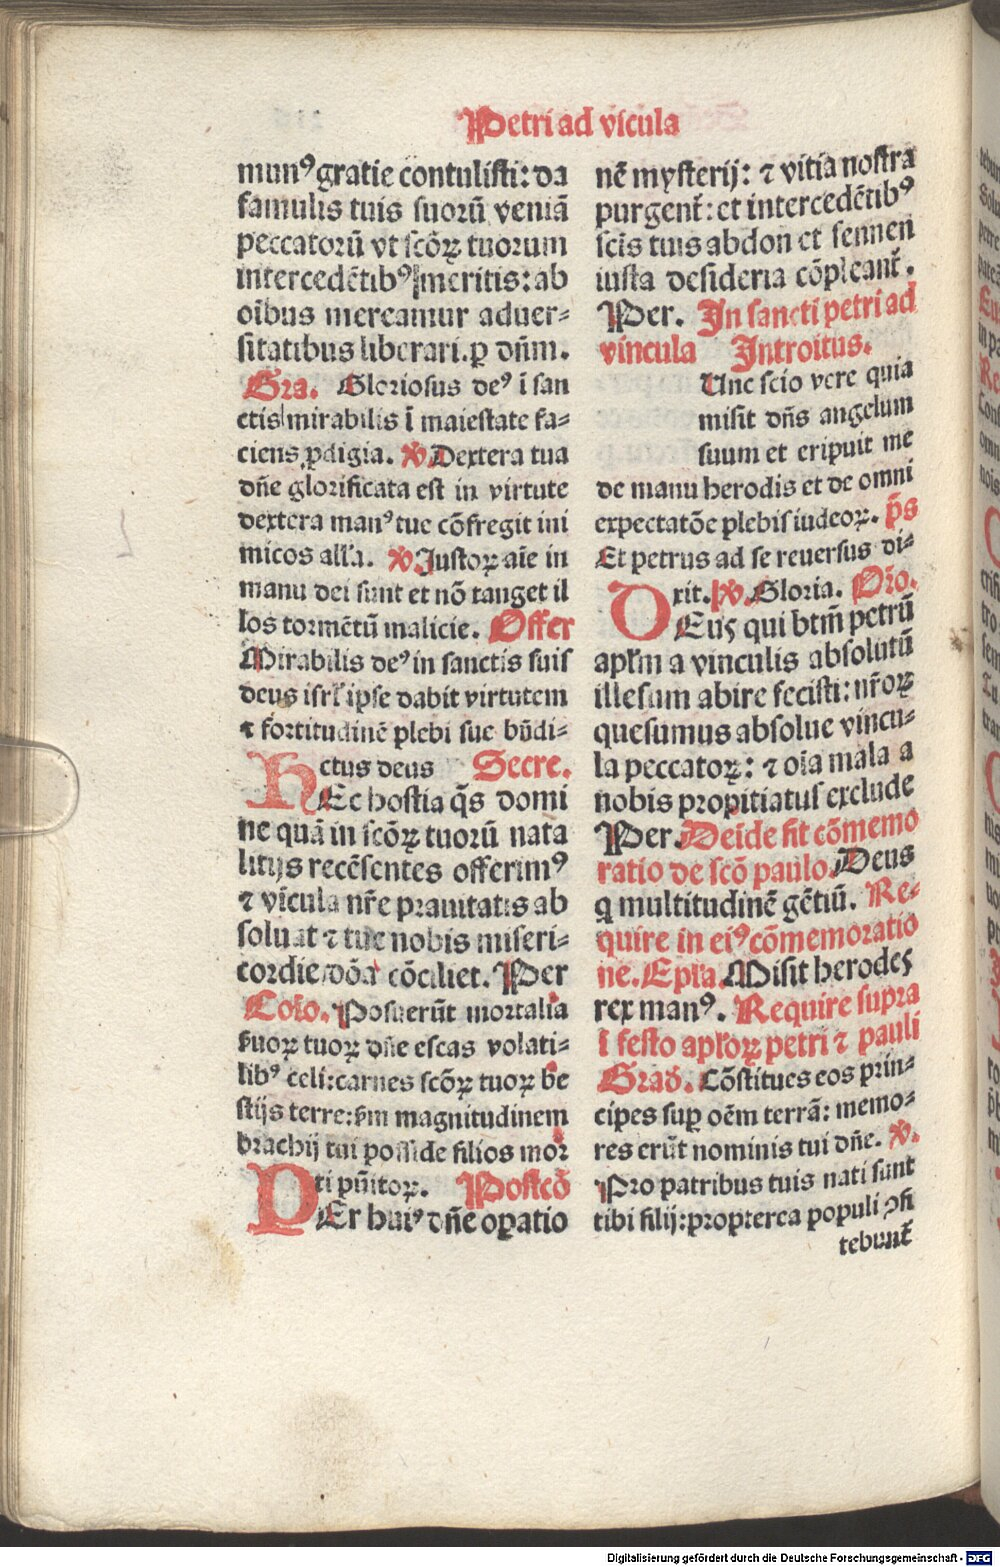 Petri ad vicula
munꝰ gratie contulisti: da
famulis tuis suorũ veniã
peccatorũ vt scõꝝ tuorum
intercedẽtibꝰ meritis: ab
oĩbus mereamur aduer⸗
sitatibus liberari. ꝑ dñm.
Gra. Gloriosus deꝰ ĩ san
ctis mirabilis ĩ maiestate fa⸗
ciens ꝓdigia. ℣ Dextera tua
dñe glorificata est in virtute
dextera manꝰ tue cõfregit ini
micos alľa. ℣ Justoꝝ aĩe in
manu dei sunt et nõ tanget il
los tormẽtũ malicie. Offer
Mirabilis deꝰ in sanctis suis
deus isrľ ipse dabit virtutem
⁊ fortitudinẽ plebi sue bñdi⸗
ctus deus Secre.
HEc hostia q̃s domi
ne quã in scõꝝ tuorũ nata
litijs recẽsentes offerimꝰ
⁊ vĩcula nr̃e prauitatis ab
soluat ⁊ tue nobis miseri⸗
cordie dõa cõciliet. Per
Colo. Posuerũt mortalia
seruoꝝ tuoꝝ dñe escas volati⸗
libꝰ celi: carnes scõꝝ tuoꝝ be
stijs terre: ẜm magnitudinem
brachij tui posside filios mor
ti pũitoꝝ. Postcõ
PEr huiꝰ dñe oꝑatio
nẽ mysterij: ⁊ vitia nostra
purgent᷑: et intercedẽtibꝰ
scis tuis abdon et sennen
iusta desideria cõpleant᷑.
Per. In sancti petri ad
vincula Introitus.
Unc scio vere quia
misit dñs angelum
suum et eripuit me
de manu herodis et de omni
expectatõe plebis iudeoꝝ. p̃s
Et petrus ad se reuersus di⸗
xit. ℣. Gloria. Oro.
DEus qui btm̃ petrũ
apľm a vinculis absolutũ
illesum abire fecisti: nr̃oꝝ
quesumus absolue vincu⸗
la peccatoꝝ: ⁊ oĩa mala a
nobis propitiatus exclude
Per. Deĩde fit cõmemo
ratio de scõ paulo. Deus
q multitudinẽ gẽtiũ. Re⸗
quire in eiꝰ cõmemoratio
ne. Epľa. Misit herodes
rex manꝰ. Require supra
ĩ festo apľoꝝ petri ⁊ pauli
Grad. Cõstitues eos prin⸗
cipes suꝑ oẽm terrã: memo⸗
res erũt nominis tui dñe. ℣.
Pro patribus tuis nati sunt
tibi filij: propterea populi ꝯfi
tebunt᷑
Digitalisierung gefördert durch die Deutsche Forschungsgemeinschaft - DFG